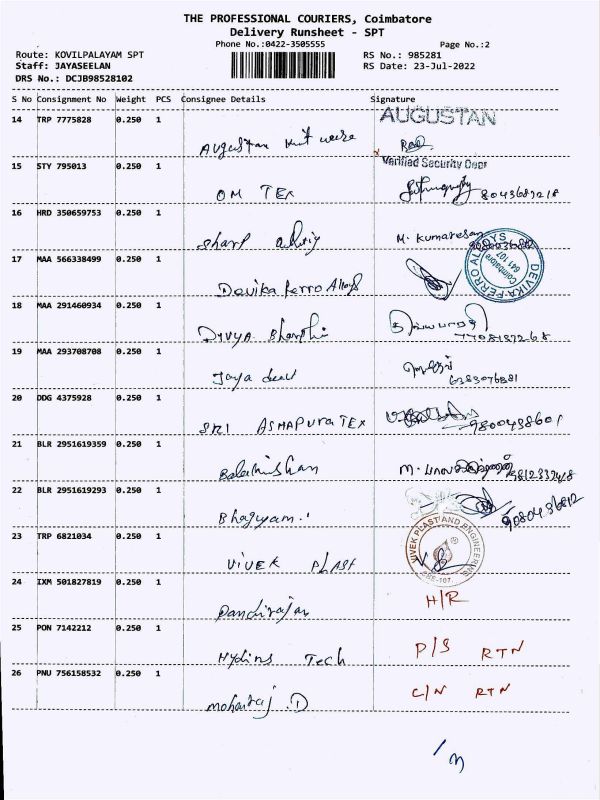 THE PROFESSIONAL COURIERS, Coimbatore
Delivery Runsheet - SPT
Phone No.:0422-3505555 Page No.:2
Route: KOVILPALAYAM SPT RS No.: 985281
Staff: JAYASEELAN RS Date: 23-Jul-2022
DRS No.: DCJB98528102
S No Consignment No Weight PCS Consignee Details Signature
14 TRP 7775828 0.250 1 AUGUSTAN
Augustan knit weare
15 STY 795013 0.250 1 Verified Security Door
OM TEX
16 HRD 350659753 0.250 1
Sharp M. Kumaresan
17 MAA 566338499 0.250 1
Devika ferro Alloys DEVIKA-FERRO ALLOYS Coimbatore 641 107
18 MAA 291460934 0.250 1
Divya Bharthi
19 MAA 293708708 0.250 1
Jaya 6383076881
20 DDG 4375928 0.250 1
SRI ASHAPURA TEX 9800498601
21 BLR 2951619359 0.250 1
Balakrishnan
22 BLR 2951619293 0.250 1
Bhagyam 9080436812
23 TRP 6821034 0.250 1 VIVEK PLAST AND ENGINEERING CBE-107
VIVEK PLAST
24 IXM 501827819 0.250 1 H/R
Pandirajan
25 PON 7142212 0.250 1 P/S RTN
Hydins Tech
26 PNU 756158532 0.250 1 C/N RTN
mohanraj .D